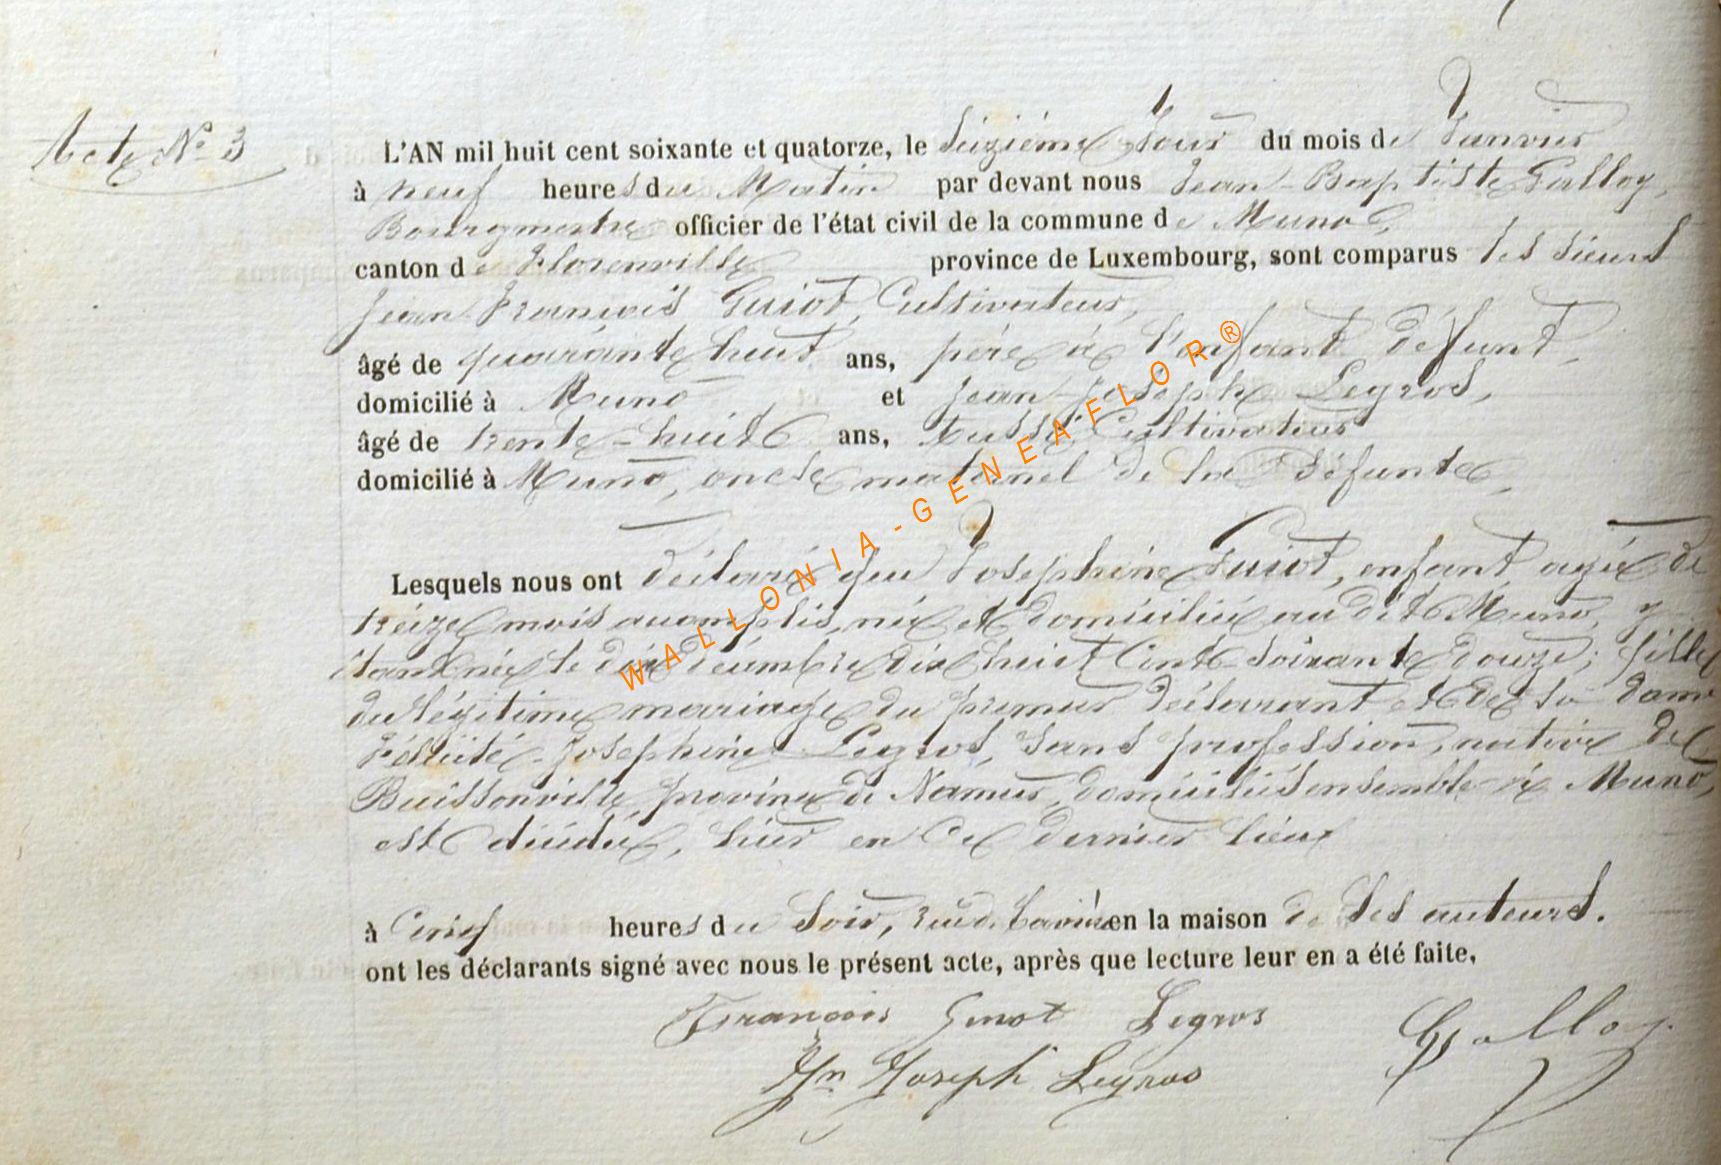 Acte N° 3
L'AN mil huit cent soixante et quatorze, le Seizième Jour du mois de Janvier
à neuf heures du Matin par devant nous Jean-Baptiste Galloy,
Bourgmestre officier de l'état civil de la commune de Muno,
canton de Florenville province de Luxembourg, sont comparus les sieurs
Jean François Guiot, Cultivateur,
âgé de quarante huit ans, père à l'enfant défunt,
domicilié à Muno et Jean-Joseph Legros,
âgé de trente-huit ans, aussi Cultivateur
domicilié à Muno, oncle maternel de la défunte,
Lesquels nous ont déclaré que Josephine Guiot, enfant agée de
treize mois accomplis, née et domiciliée au dit Muno, y
étant née le dix décembre dix huit Cent soixante douze; fille
du légitime mariage du premier déclarant et de sa dame
Félicité-Josephine Legros, sans profession, native de
Buissonville, province de Namur, domiciliés ensemble à Muno,
est décédée, hier en ce dernier lieu
à Cinq heures du Soir, en la maison de ses auteurs.
ont les déclarants signé avec nous le présent acte, après que lecture leur en a été faite,
François Genot Legros
Galloy
Jn Joseph Legros
WALLONIA-GENEAFLOR®